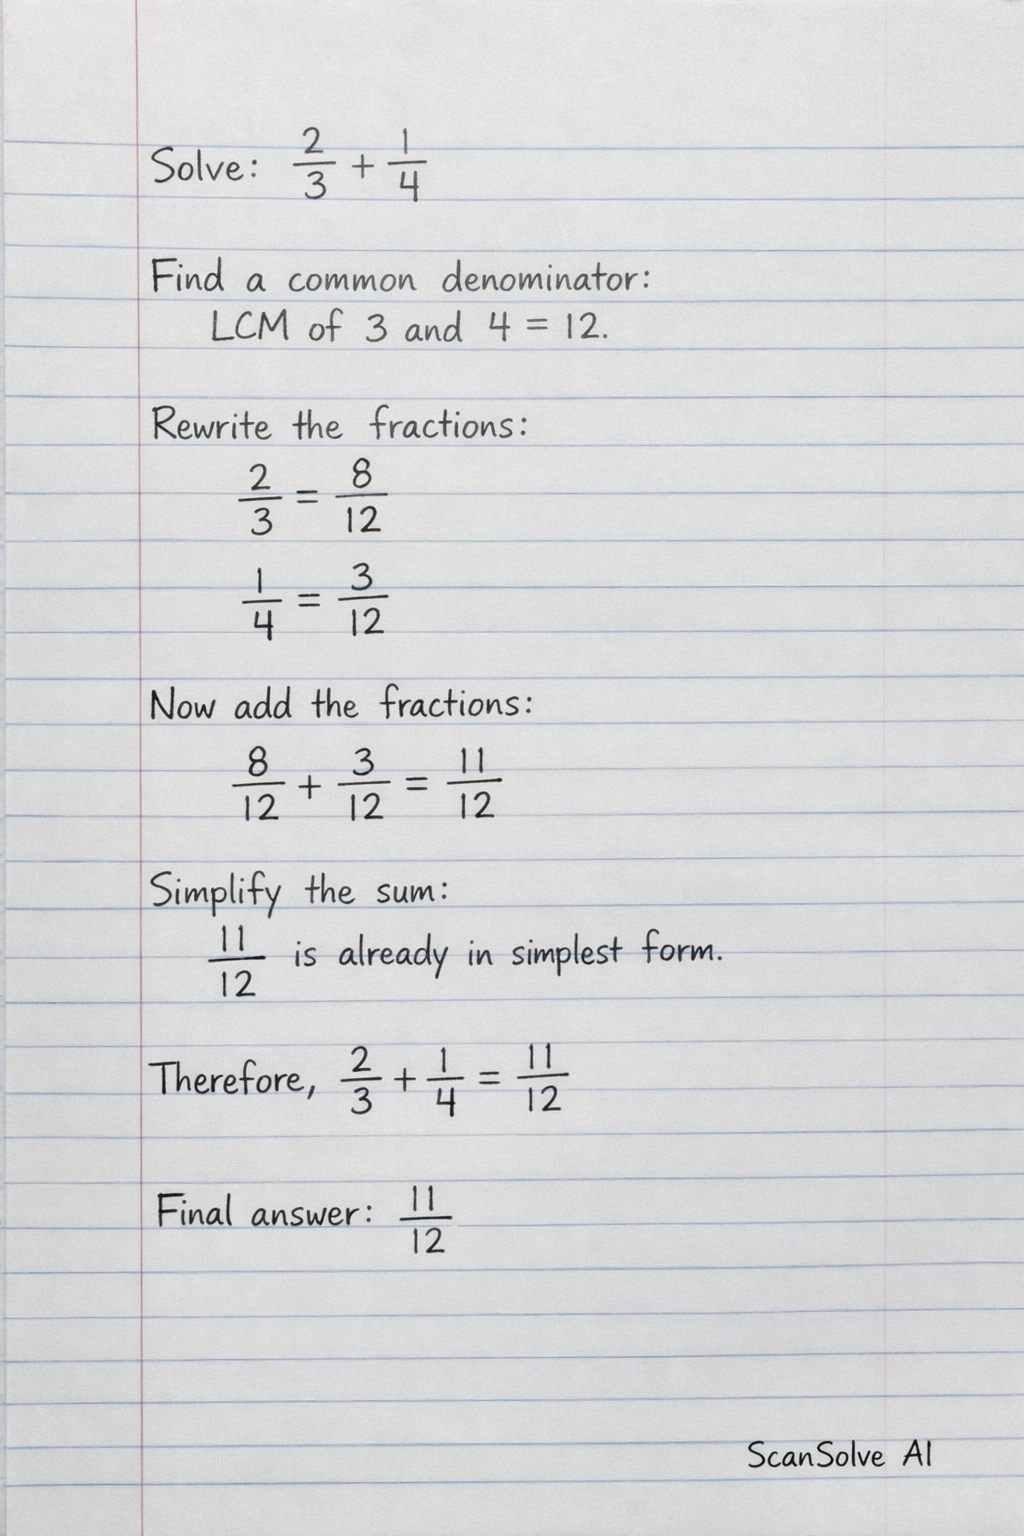 Solve: 2/3 + 1/4
Find a common denominator:
LCM of 3 and 4 = 12.
Rewrite the fractions:
2/3 = 8/12
1/4 = 3/12
Now add the fractions:
8/12 + 3/12 = 11/12
Simplify the sum:
11/12 is already in simplest form.
Therefore, 2/3 + 1/4 = 11/12
Final answer: 11/12
ScanSolve AI